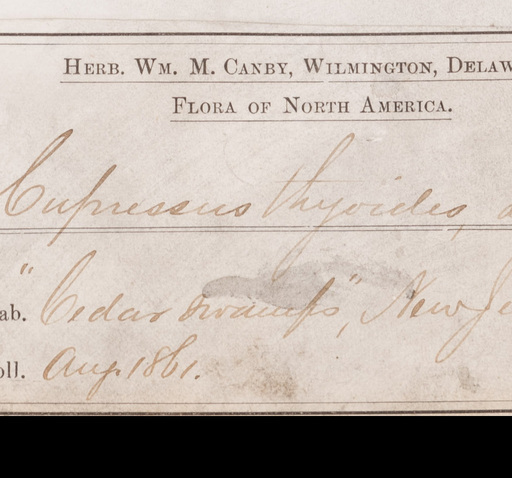 Herb. Wm. M. Canby, Wilmington, Delaw
Flora of North America.
Cupressus thyoides,
ab. "Cedar swamps", New Je
oll. Aug. 1861.